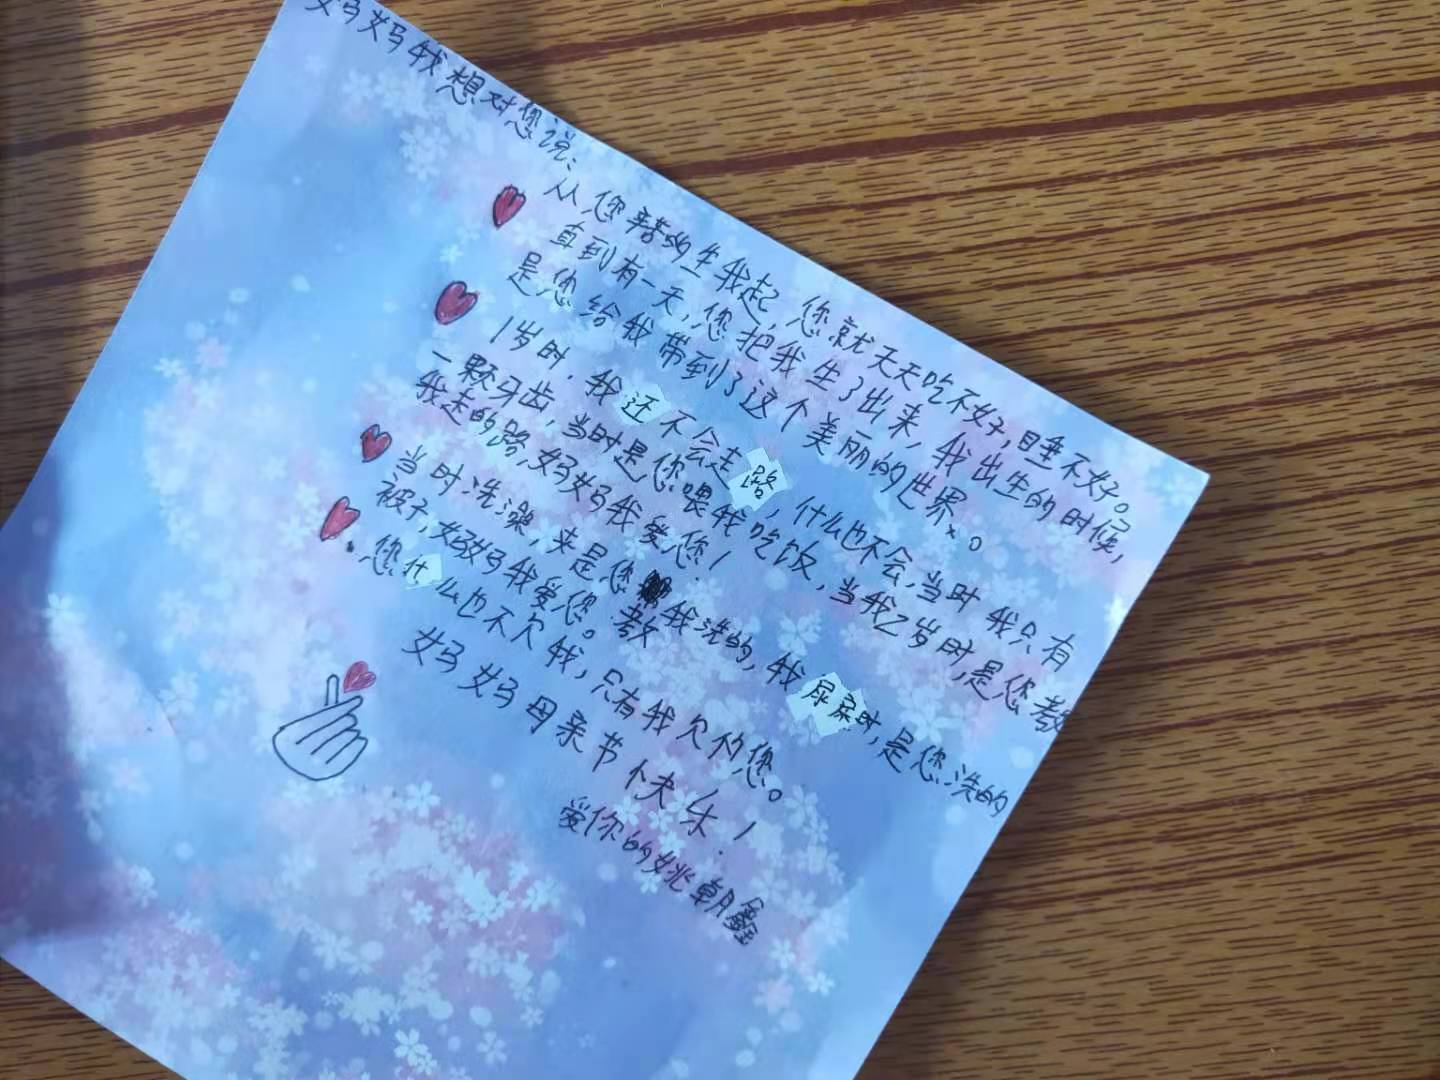 妈妈我想对您说、
从您辛苦的生我起，您就天天吃不好，睡不好。
直到有一天，您把我生了出来，我出生的时候，
是您给我带到了这个美丽的世界、。
1岁时，我还不会走路，什么也不会，当时我只有
一颗牙齿，当时是您喂我吃饭，当我2岁时，是您教
我走的路，妈妈我爱您！
当时洗澡，夹是您教我洗的，我尿尿时，是您洗的
被子，妈妈我爱您。
您什么也不欠我，只有我欠的您。
妈妈母亲节快乐！
爱你的姚朝鑫